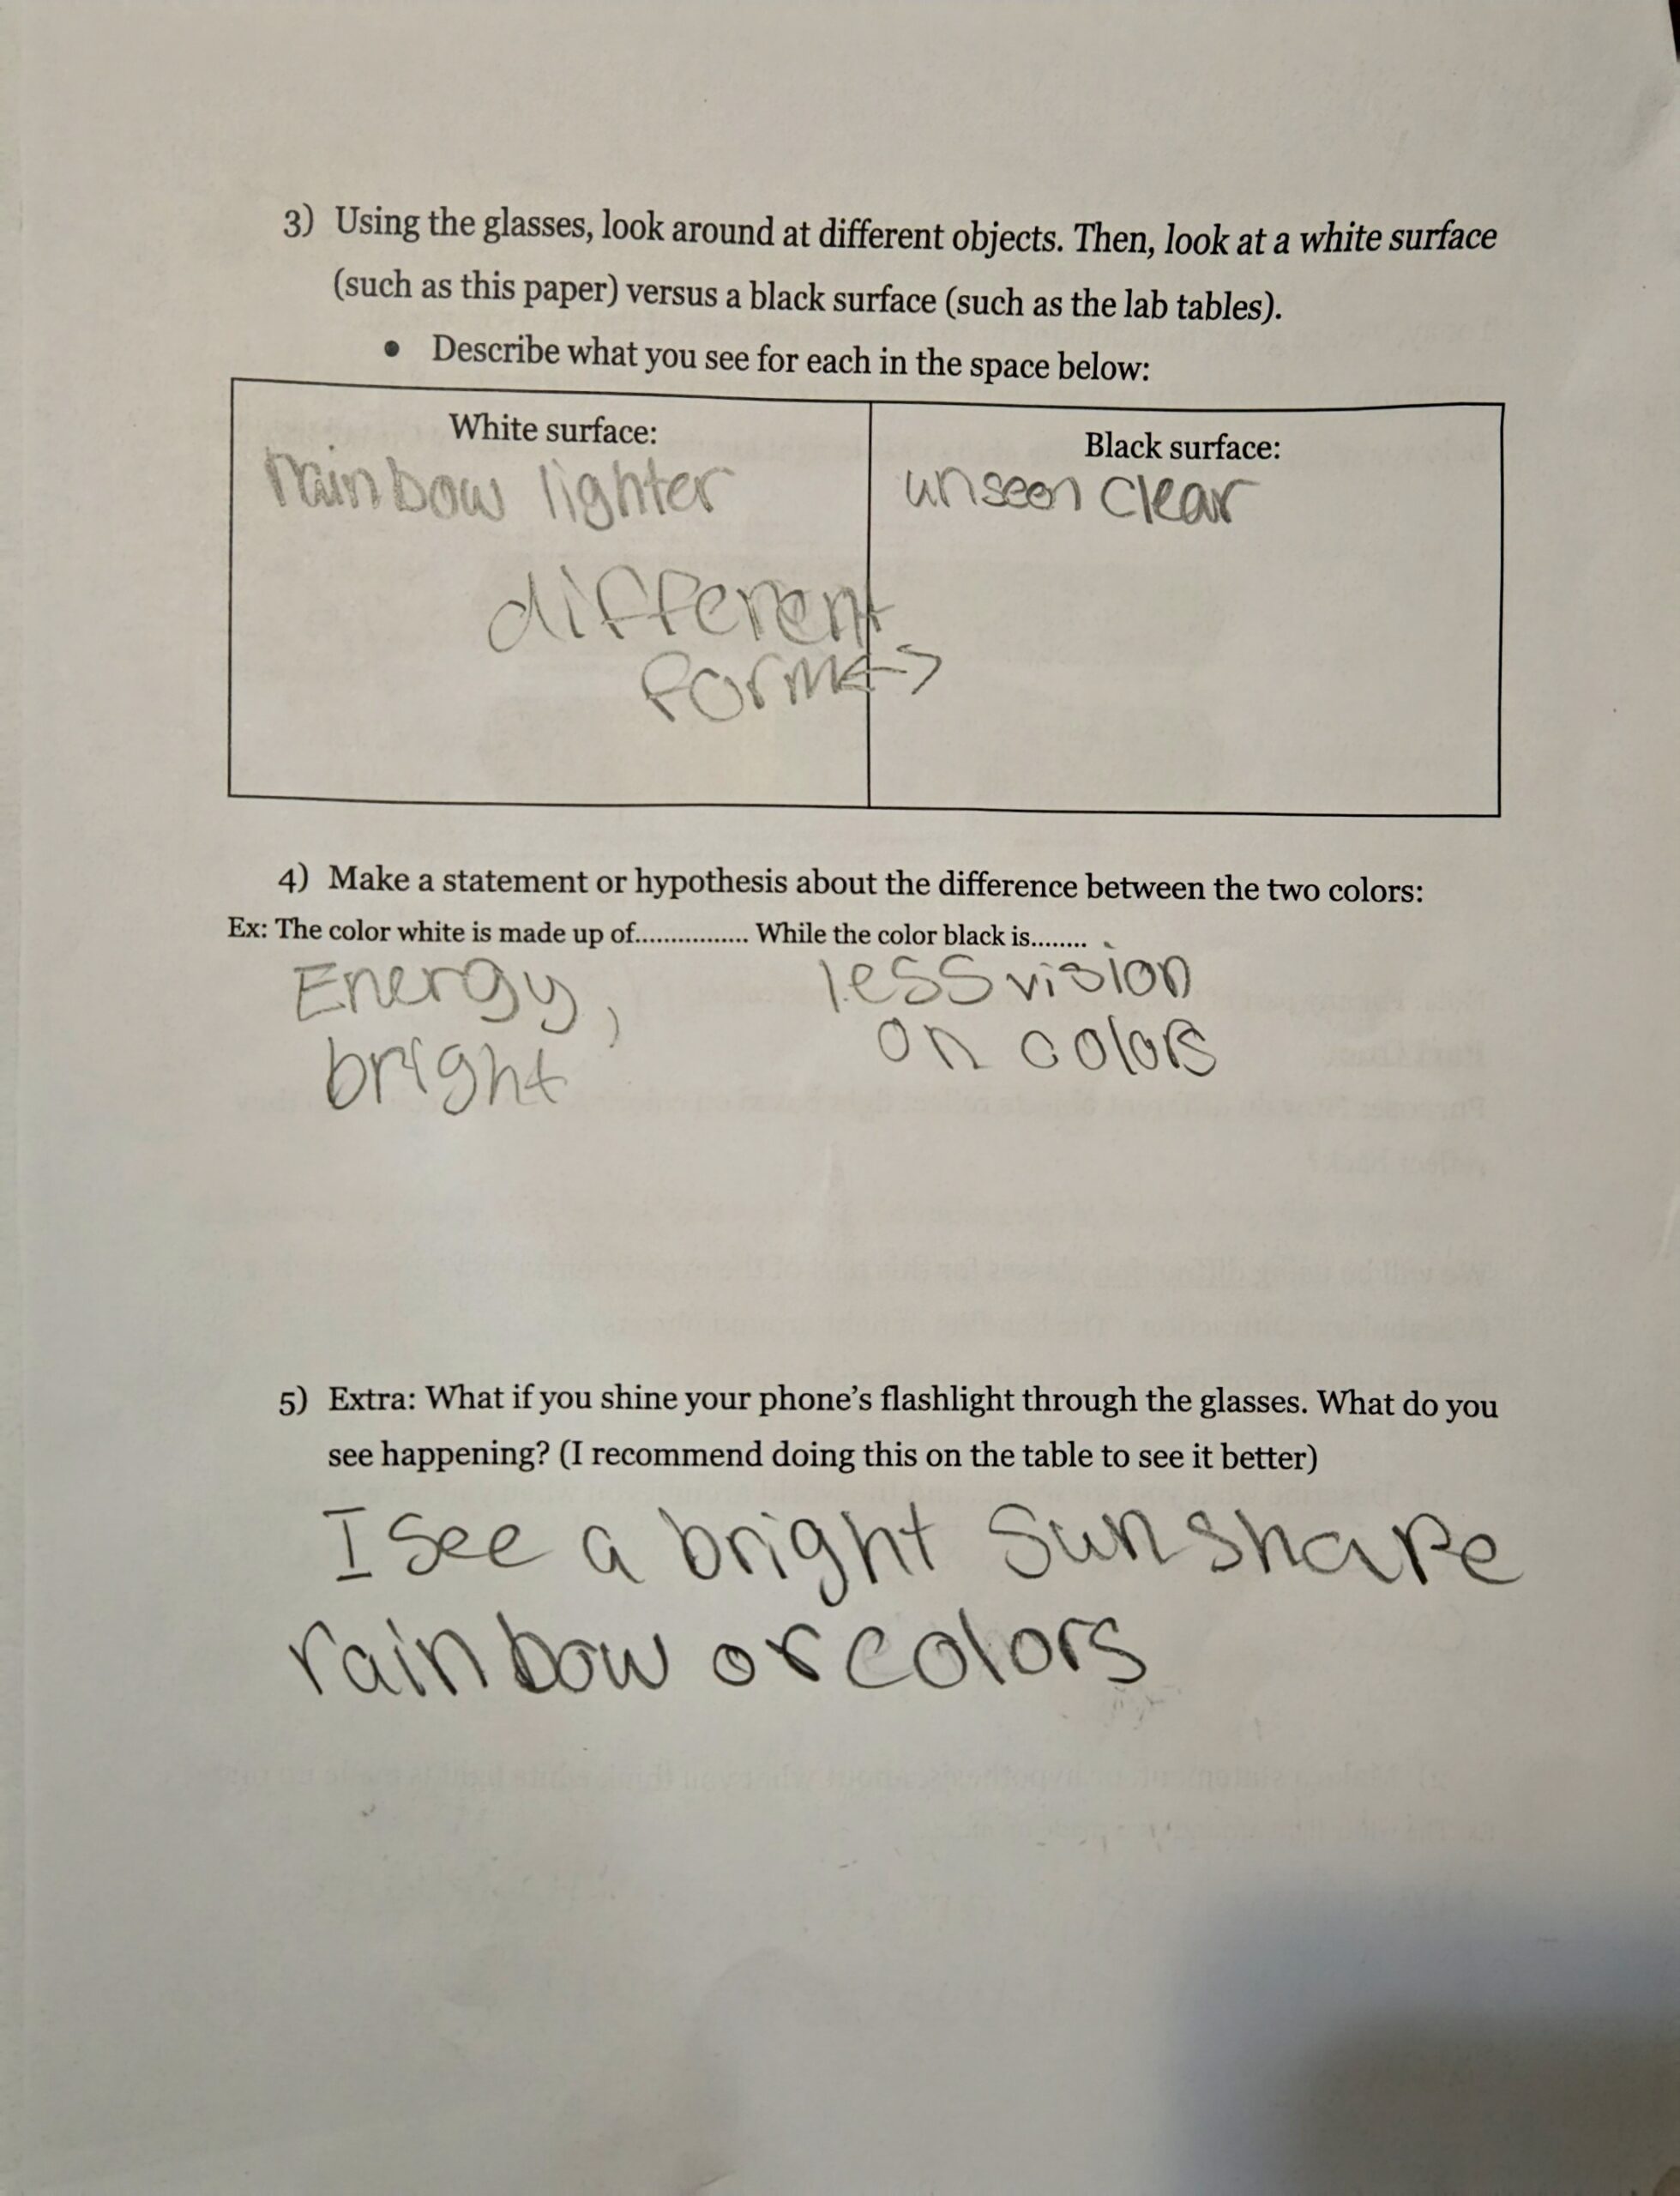 3) Using the glasses, look around at different objects. Then, look at a white surface
(such as this paper) versus a black surface (such as the lab tables).
• Describe what you see for each in the space below:
White surface:
rainbow lighter
different
forms
Black surface:
unseen clear
4) Make a statement or hypothesis about the difference between the two colors:
Ex: The color white is made up of................ While the color black is........
Energy, less vision
bright on colors
5) Extra: What if you shine your phone's flashlight through the glasses. What do you
see happening? (I recommend doing this on the table to see it better)
I see a bright sun shape
rainbow or colors